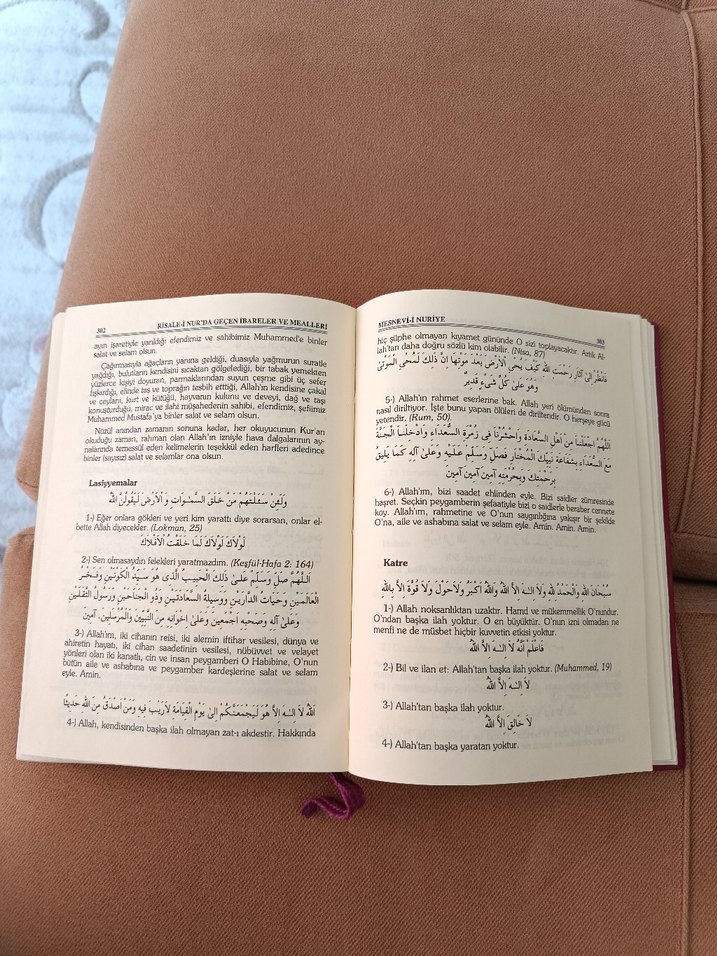 302 RİSALE-İ NUR'DA GEÇEN İBARELER VE MEALLERİ
ayın işaretiyle yarıldığı efendimiz ve sahibimiz Muhammed'e binler
salat ve selam olsun.
Çağırmasıyla ağaçların yanına geldiği, duasıyla yağmurun suratle
yağdığı, bulutların kendisini sıcaktan gölgelediği, bir tabak yemekten
yüzlerce kişiyi doyuran, parmaklarından suyun çeşme gibi üç sefer
fışkırdığı, elinde taş ve toprağın tesbih ettiği, Allah'ın kendisine çakal
ve ceylanı, kurt ve kütüğü, hayvanın kulunu ve deveyi, dağ ve taşı
konuşturduğu, mirac ve ilahî müşahedenin sahibi, efendimiz, şefiimiz
Muhammed Mustafa'ya binler salat ve selam olsun.
Nüzül anından zamanın sonuna kadar, her okuyucunun Kur'an
okuduğu zaman, rahman olan Allah'ın izniyle hava dalgalarının ay-
nalarında temessül eden kelimelerin teşekkül eden harfleri adedince
binler (sayısız) salat ve selamlar ona olsun.
Lasiyyemalar
وَلَئِنْ سَئَلْتَهُمْ مَنْ خَلَقَ السَّمٰوَاتِ وَ الْاَرْضَ لَيَقُولُنَّ اللّٰهُ
1-) Eğer onlara gökleri ve yeri kim yarattı diye sorarsan, onlar el-
bette Allah diyecekler. (Lokman, 25)
لَوْلَاكَ لَوْلَاكَ لَمَا خَلَقْتُ الْاَفْلَاكَ
2-) Sen olmasaydın felekleri yaratmazdım. (Keşfül-Hafa 2: 164)
اَللّٰهُمَّ صَلِّ وَسَلِّمْ عَلٰى ذٰلِكَ الْحَبِيبِ الَّذِى هُوَ سَيِّدُ الْكَوْنَيْنِ وَفَخْرُ
الْعَالَمَيْنِ وَحَيَاتُ الدَّارَيْنِ وَوَسِيلَةُ السَّعَادَتَيْنِ وَذُو الْجَنَاحَيْنِ وَرَسُولُ الثَّقَلَيْنِ
وَعَلٰى اٰلِهِ وَصَحْبِهِ اَجْمَعِينَ وَعَلٰى اِخْوَانِهِ مِنَ النَّبِيِّينَ وَالْمُرْسَلِينَ. اٰمِينَ
3-) Allah'ım, iki cihanın reisi, iki alemin iftihar vesilesi, dünya ve
ahiretin hayatı, iki cihan saadetinin vesilesi, nübüvvet ve velayet
yönleri olan iki kanatlı, cin ve insan peygamberi O Habibine, O'nun
bütün aile ve ashabına ve peygamber kardeşlerine salat ve selam
eyle. Amin.
اَللّٰهُ لَا اِلٰهَ اِلَّا هُوَ لَيَجْمَعَنَّكُمْ اِلٰى يَوْمِ الْقِيَامَةِ لَارَيْبَ فِيهِ وَمَنْ اَصْدَقُ مِنَ اللّٰهِ حَدِيثًا
4-) Allah, kendisinden başka ilah olmayan zat-ı akdestir. Hakkında
MESNEVİ-İ NURİYE 303
hiç şüphe olmayan kıyamet gününde O sizi toplayacaktır. Artık Al-
lah'tan daha doğru sözlü kim olabilir. (Nisa, 87)
فَانْظُرْ اِلٰى اٰثَارِ رَحْمَتِ اللّٰهِ كَيْفَ يُحْيِى الْاَرْضَ بَعْدَ مَوْتِهَا اِنَّ ذٰلِكَ لَمُحْيِى الْمَوْتٰى
وَهُوَ عَلٰى كُلِّ شَىْءٍ قَدِيرٌ
5-) Allah'ın rahmet eserlerine bak. Allah yeri ölümünden sonra
nasıl diriltiyor. İşte bunu yapan ölüleri de diriltendir. O herşeye gücü
yetendir. (Rum, 50)
اَللّٰهُمَّ اجْعَلْنَا مِنْ اَهْلِ السَّعَادَةِ وَاحْشُرْنَا فِى زُمْرَةِ السُّعَدَاءِ وَادْخِلْنَا الْجَنَّةَ
مَعَ السُّعَدَاءِ بِشَفَاعَةِ نَبِيِّكَ الْمُخْتَارِ فَصَلِّ وَسَلِّمْ عَلَيْهِ وَعَلٰى اٰلِهِ كَمَا يَلِيقُ
بِرَحْمَتِكَ وَبِحُرْمَتِهِ اٰمِينَ اٰمِينَ اٰمِينَ
6-) Allah'ım, bizi saadet ehlinden eyle. Bizi saidler zümresinde
haşret. Seçkin peygamberin şefaatiyle bizi o saidlerle beraber cennete
koy. Allah'ım, rahmetine ve O'nun saygınlığına yakışır bir şekilde
O'na, aile ve ashabına salat ve selam eyle. Amin. Amin. Amin.
Katre
سُبْحَانَ اللّٰهِ وَالْحَمْدُ لِلّٰهِ وَلَا اِلٰهَ اِلَّا اللّٰهُ وَاللّٰهُ اَكْبَرُ وَلَاحَوْلَ وَلَا قُوَّةَ اِلَّا بِاللّٰهِ
1-) Allah noksanlıktan uzaktır. Hamd ve mükemmellik O'nundur.
O'ndan başka ilah yoktur. O en büyüktür. O'nun izni olmadan ne
menfi ne de müsbet hiçbir kuvvetin etkisi yoktur.
فَاعْلَمْ اَنَّهُ لَا اِلٰهَ اِلَّا اللّٰهُ
2-) Bil ve ilan et: Allah'tan başka ilah yoktur. (Muhammed, 19)
لَا اِلٰهَ اِلَّا اللّٰهُ
3-) Allah'tan başka ilah yoktur.
لَا خَالِقَ اِلَّا اللّٰهُ
4-) Allah'tan başka yaratan yoktur.